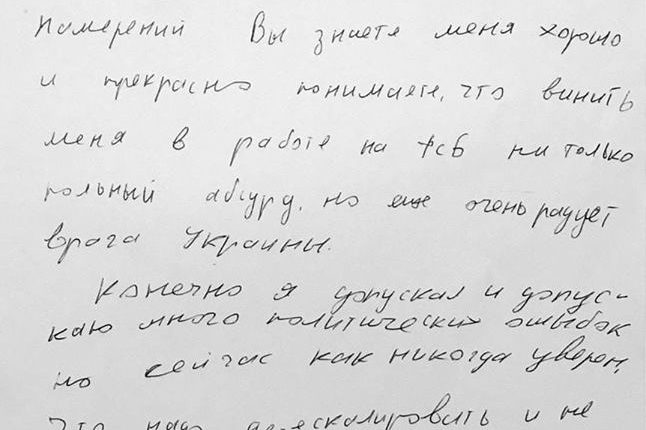 намерений Вы знаете меня хорошо
и прекрасно понимаете, что винить
меня в работе на фсб ни только
полный абсурд, но еще очень радует
врага Украины.
Конечно я допускал и допус-
каю много политических ошыбок
но сейчас как никогда уверен,
что надо деэскалировать и не